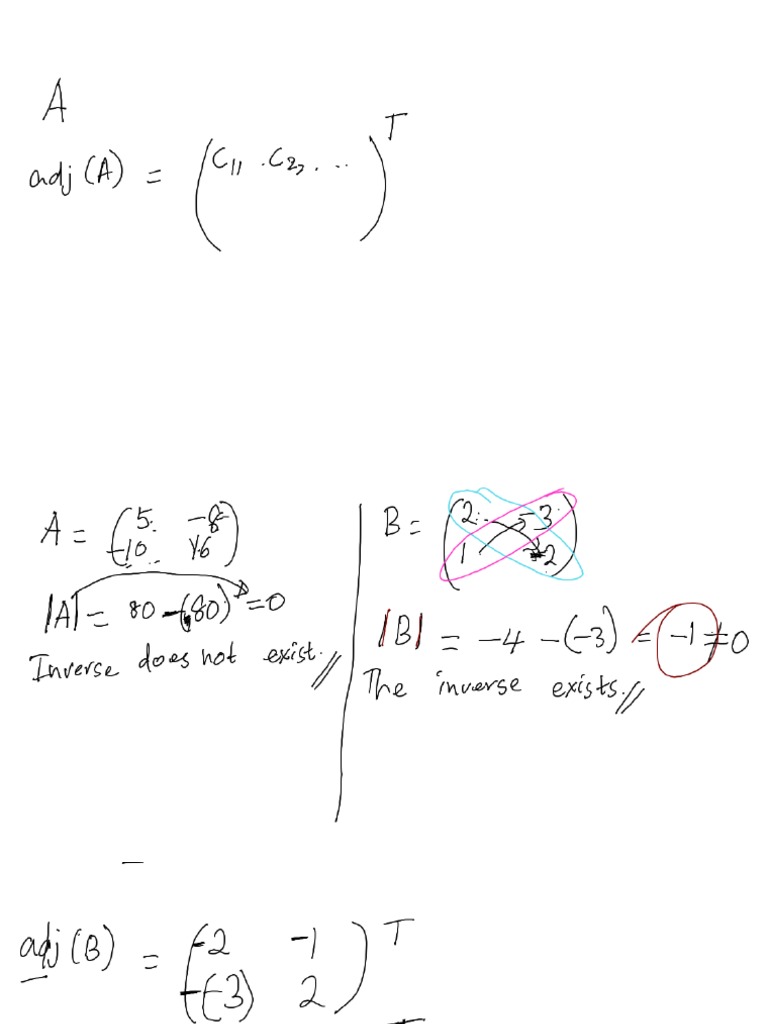 A
adj (A) = (C₁₁ . C₂₂ . ...)ᵀ
A = (5 -8
-10 16)
|A| = 80 - (80) = 0
Inverse does not exist. //
B = (2 -3
1 -2)
|B| = -4 - (-3) = -1 ≠ 0
The inverse exists. //
adj (B) = (-2 -1
-(-3) 2)ᵀ